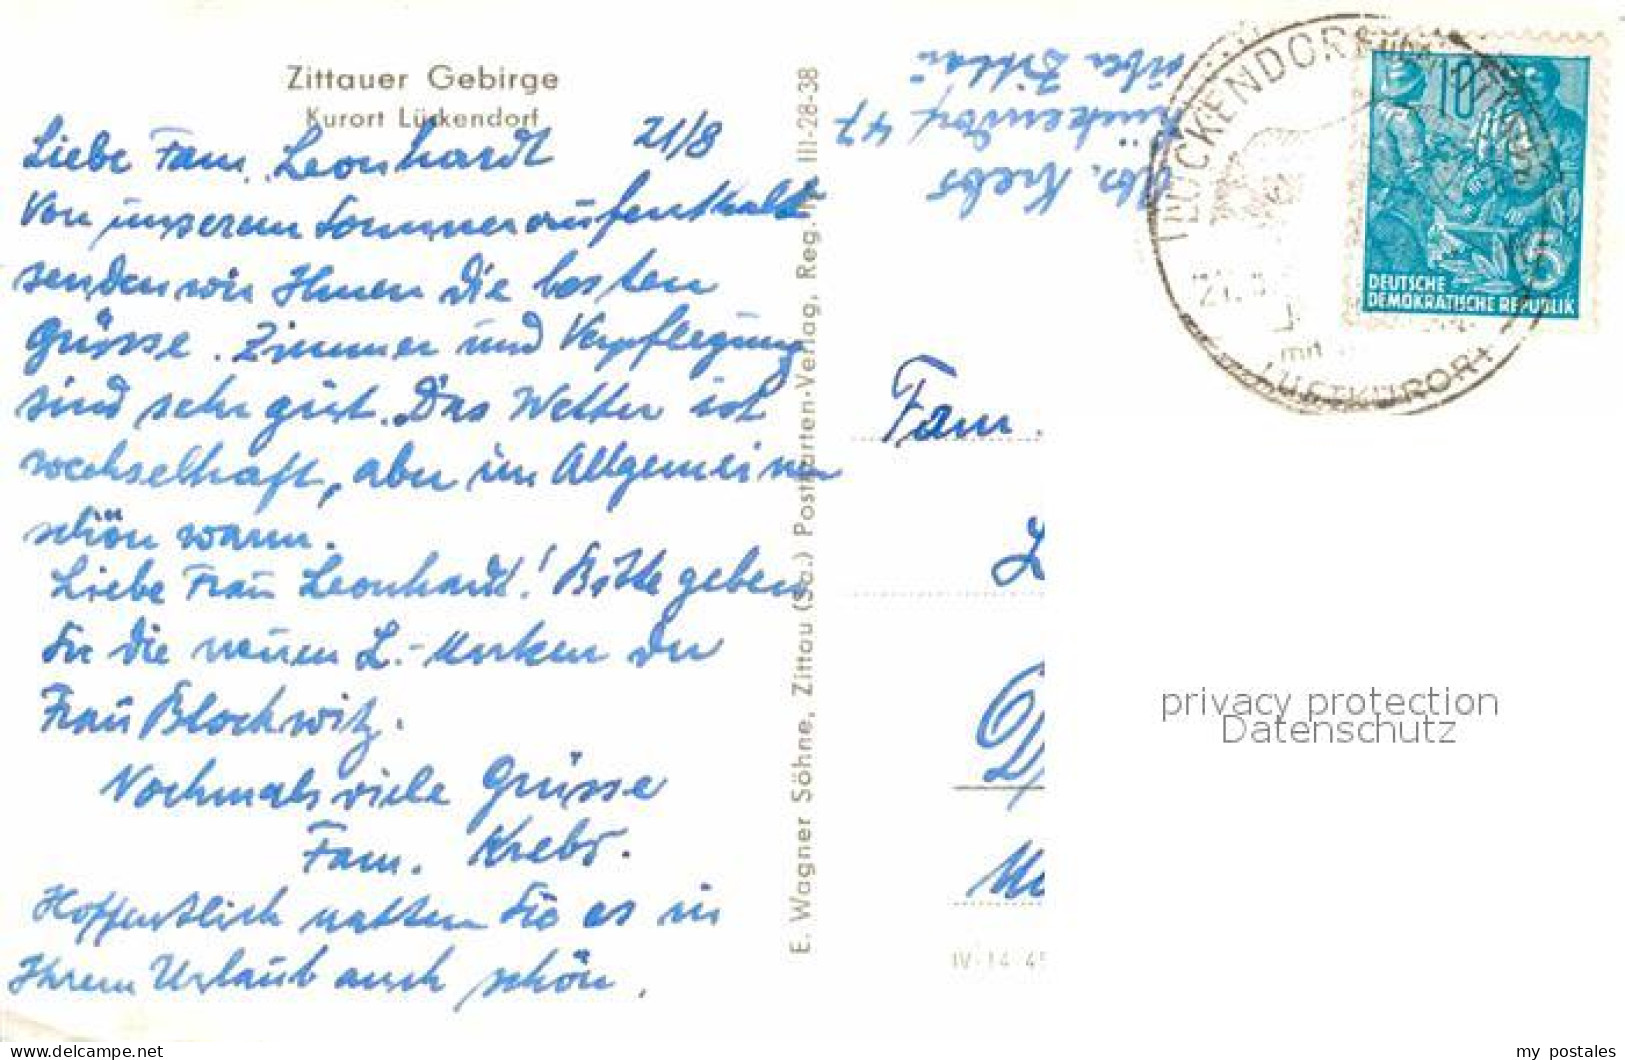 Zittauer Gebirge
Kurort Lückendorf
21/8
Liebe Fam. Leonhardt
Von unserem Sommeraufenthalt
senden wir Ihnen die besten
Grüsse. Zimmer und Verpflegung
sind sehr gut. Das Wetter ist
wechselhaft, aber im Allgemeinen
schön warm.
Liebe Frau Leonhardt! Bitte geben
Sie die neuen L.-Marken der
Frau Blochwitz.
Nochmals viele Grüsse
Fam. Krebs.
Hoffentlich hatten Sie es in
Ihrem Urlaub auch schön.
E. Wagner Söhne, Zittau (Sa.) Postkarten-Verlag, Reg. III-28-38
Abs. Krebs
Lückendorf 47
über Zittau
LÜCKENDORF
LUFTKURORT
10
5
DEUTSCHE
DEMOKRATISCHE REPUBLIK
Fam.
IV-14-45
privacy protection
Datenschutz
my postales